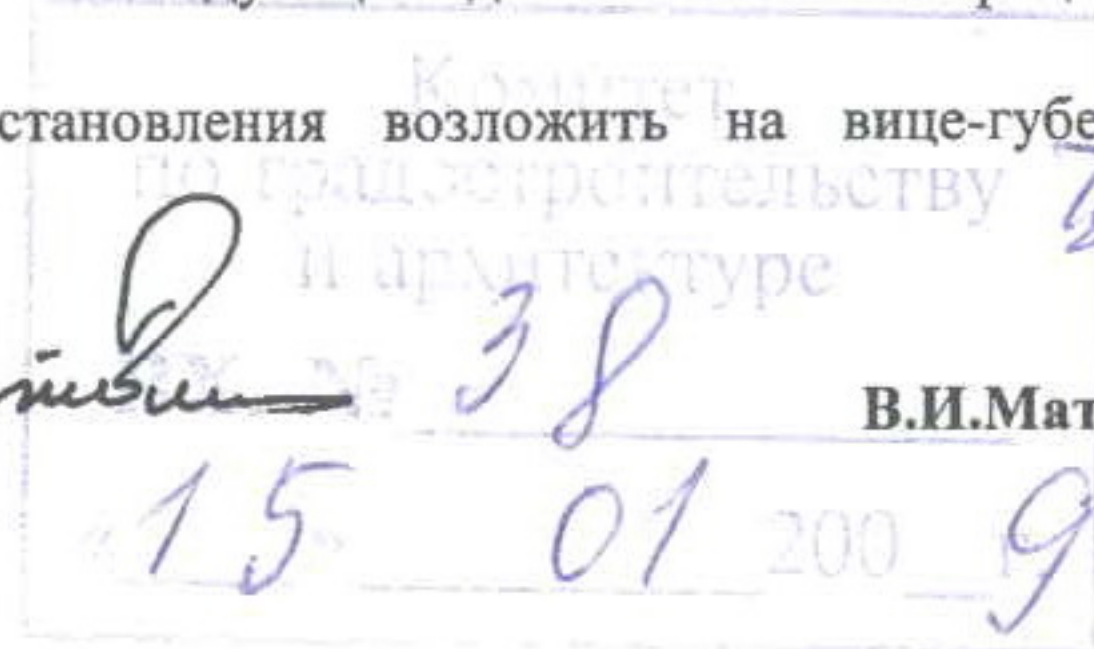 становления возложить на вице-губе
Комитет
по градостроительству
и архитектуре
№ 38
В.И.Мат
« 15 » 01 200 9